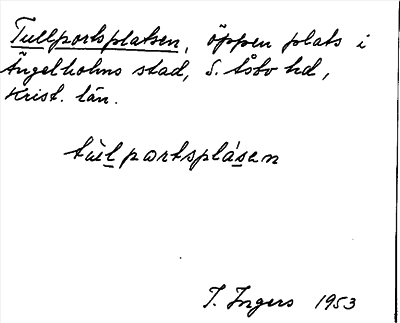 Tullportsplatsen, öppen plats i
Ängelholms stad, S. Åsbo hd,
Krist. län.
tùl portsplásen
I. Ingers 1953